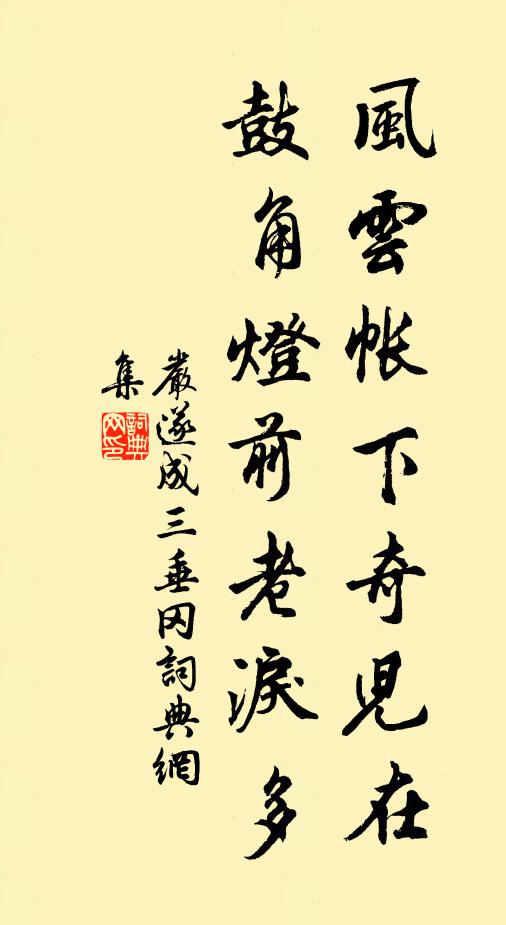 風雲帳下奇児在
鼓角燈前老淚多
嚴遂成三垂冈詞典網
集
詞典网印